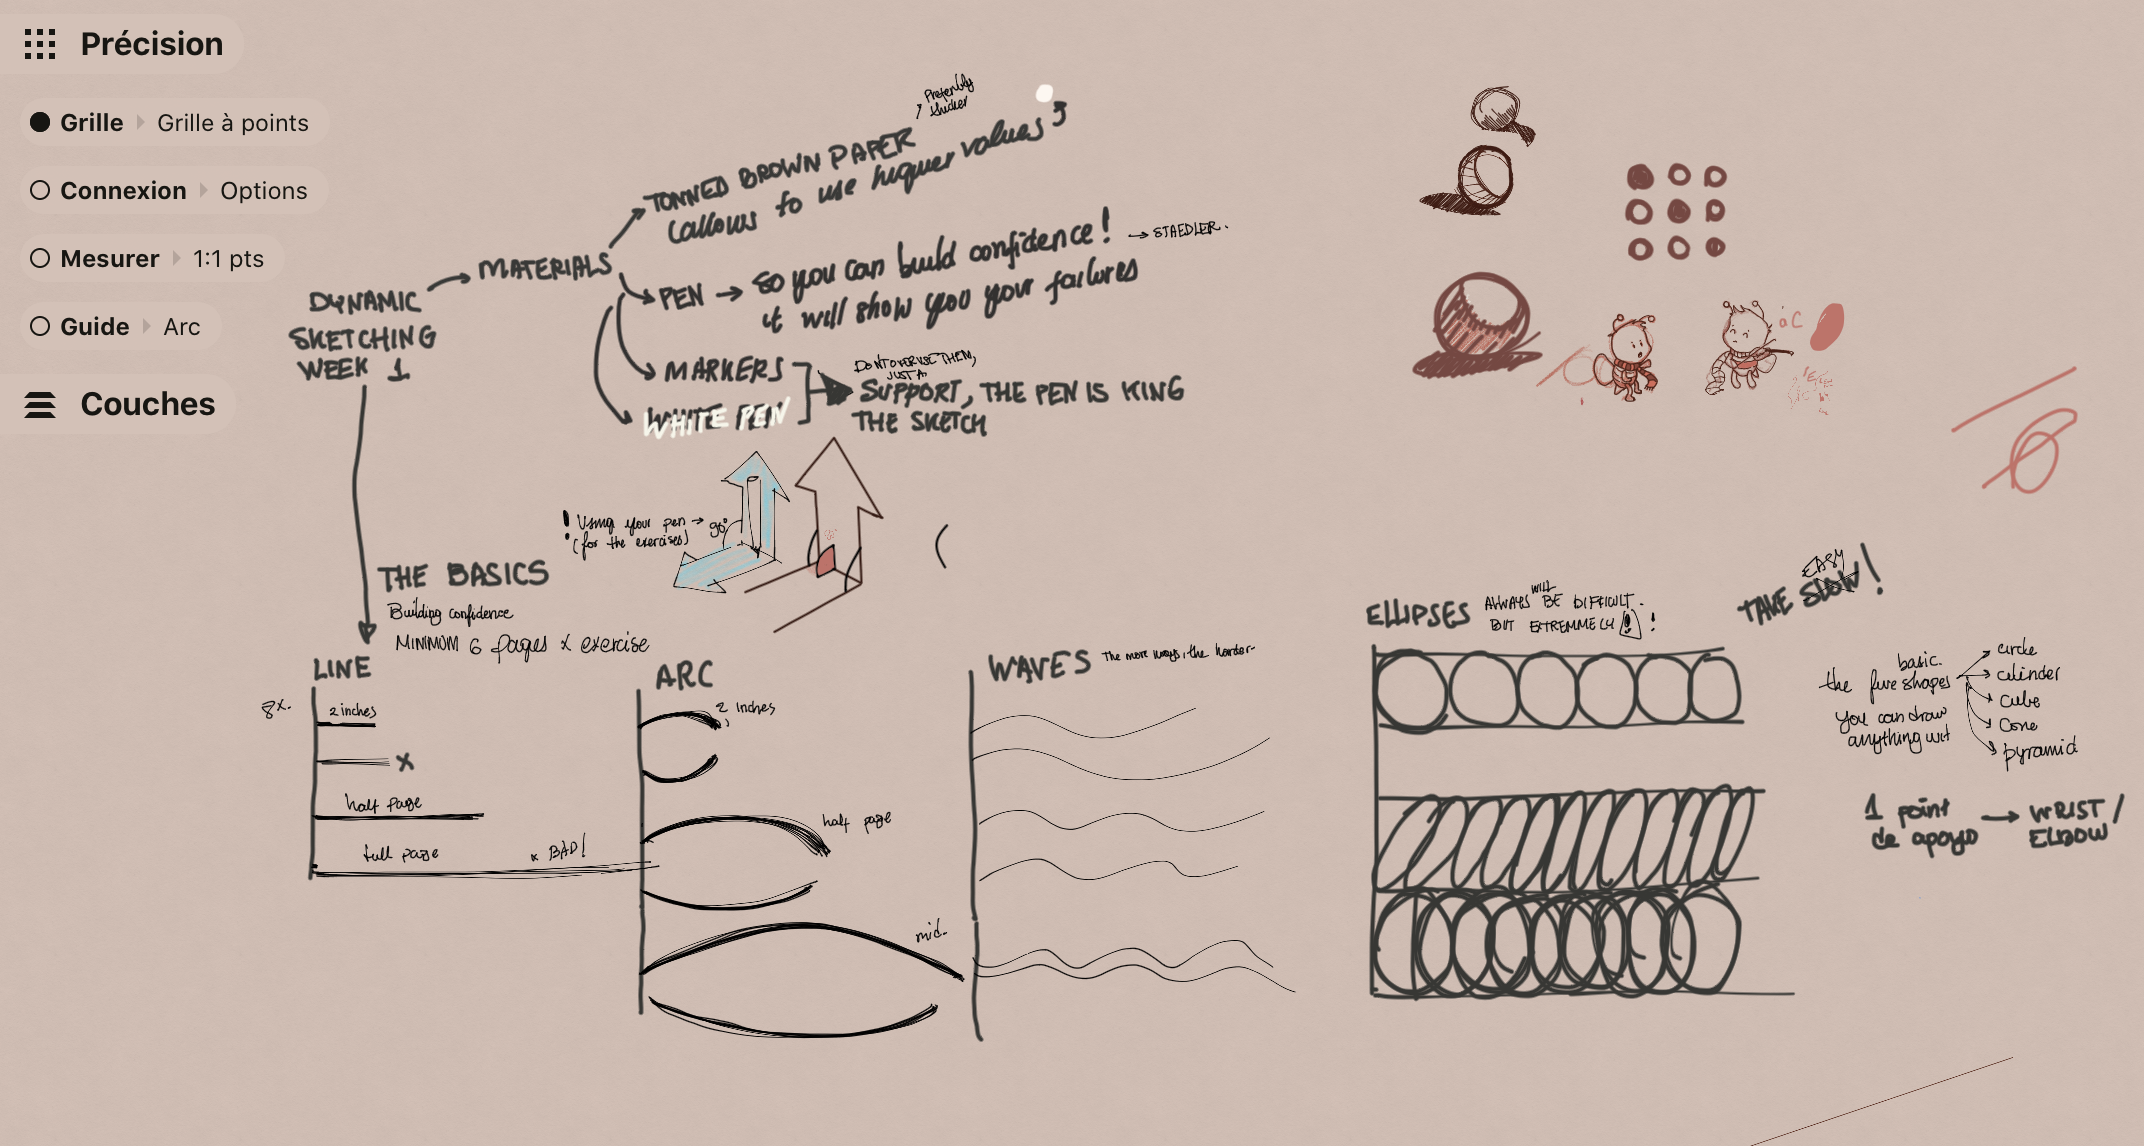 Précision
Grille Grille à points
Connexion Options
Mesurer 1:1 pts
Guide Arc
Couches
DYNAMIC
SKETCHING
WEEK 1
MATERIALS
TONNED BROWN PAPER
Preferibly
thicker
(allows to use higuer values)
PEN → So you can build confidence! → STAEDLER.
it will show you your failures
MARKERS
WHITE PEN
DON'T OVERUSE THEM,
JUST A
SUPPORT, THE PEN IS KING
THE SKETCH
! Using your pen → 90°
(for the exercises)
THE BASICS
Building confidence
MINIMUM 6 pages x exercise
LINE
8x.
2 inches
x
half page
full page
x BAD!
ARC
2 inches
half page
mid.
WAVES
The more ways, the harder
ELLIPSES
ALWAYS WILL BE DIFFICULT.
BUT EXTREMMELY !
TAKE SLOW EASY!
basic.
the five shapes
you can draw
anything wit
circle
cilinder
cube
Cone
pyramid
1 point
de apoyo → WRIST /
ELBOW